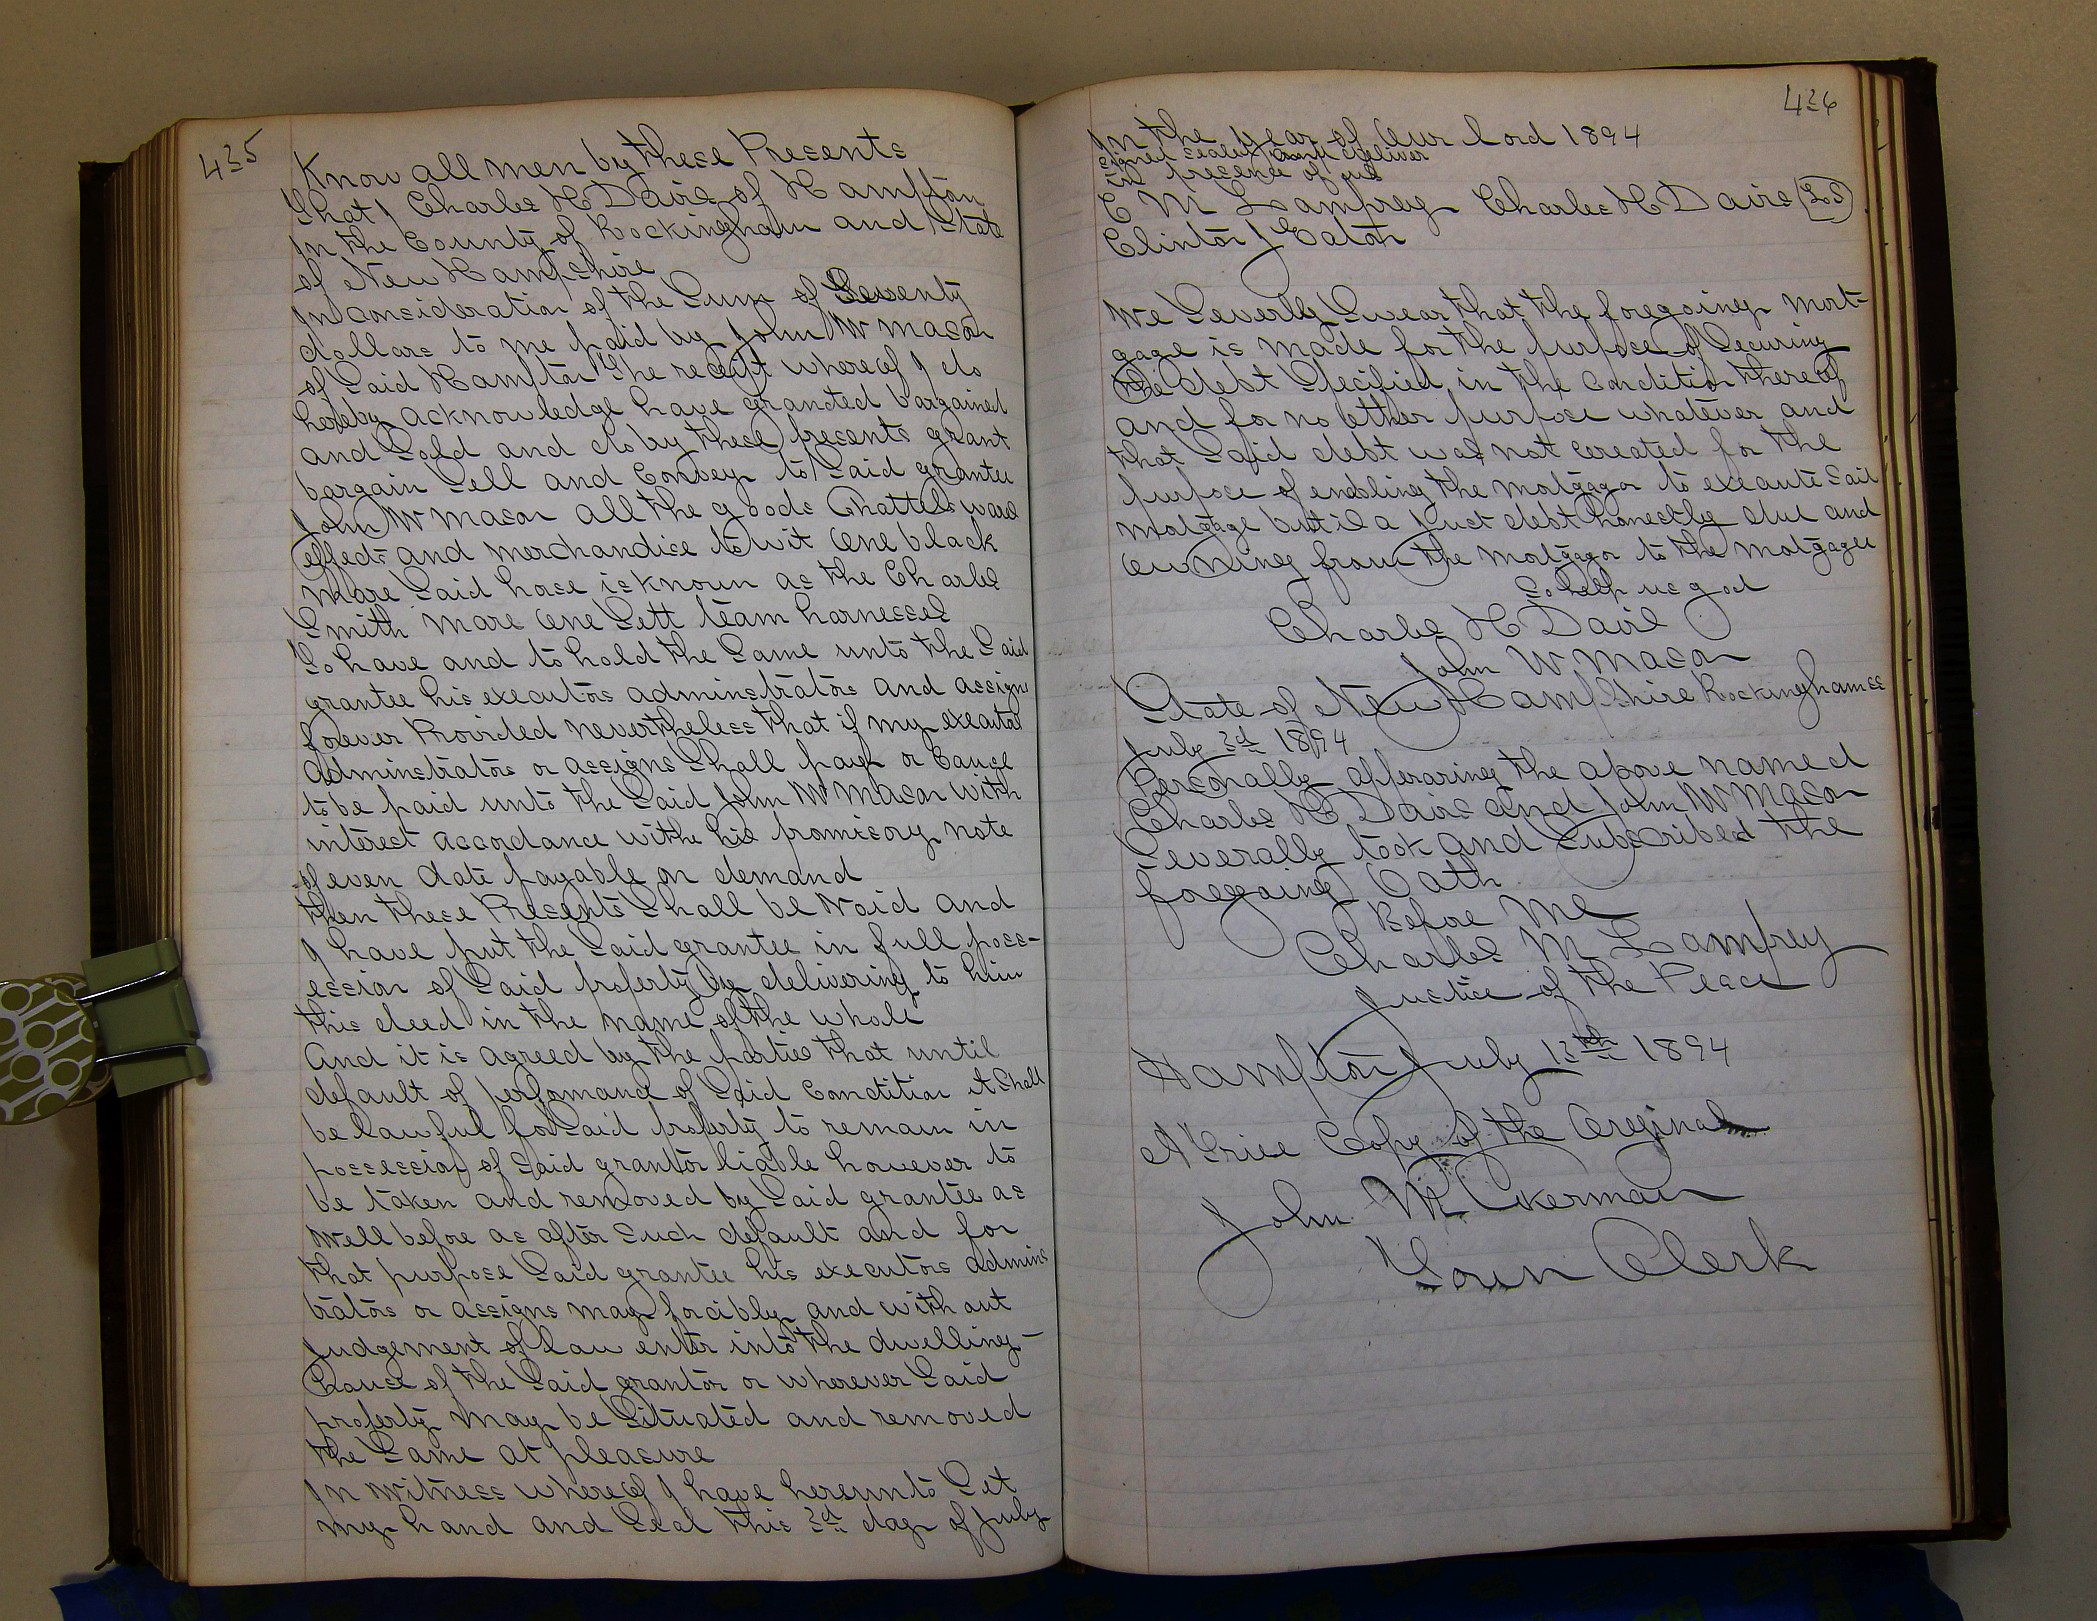 435
Know all men by these Presents
That I Charles H Davis of Hampton
In the County of Rockingham and State
of New Hampshire
In consideration of the Sum of Seventy
dollars to me paid by John W Mason
of Said Hampton The receipt whereof I do
hereby acknowledge have grancted bargained
and Sold and do by these presents grant
bargain Sell and Convey to Said grantee
John W Mason all the goods Chattels ware
effects and merchandise to wit One black
Mare Said hose is knoun as the Charles
Smith Mare One Sett team harnesses
To have and to hold the Same unto the Said
grantee his executors adminstrators and assigns
forever Provided nevertheless that if my executor
adminstrators or assigns Shall pay or Cause
to be paid unto the Said John W Mason with
interest accordance withe his promisory note
of even date payable on demand
then these Presents Shall be Void and
I have put the Said grantee in full poss-
ession of Said property by delivering to him
this deed in the name of the whole
And it is agreed by the parties that until
default of perfomance of Said Condition it Shall
be lawful for Said property to remain in
possession of Said grantor liable however to
be taken and removed by Said grantee as
Well before as after Such default and for
that purpose Said grantee his executors admins
trators or assigns may forcibly and with out
judgement of law enter into the dwelling-
house of the Said grantor or wherever Said
property may be Situated and removed
the Same at pleasure
In witness whereof I have hereunto Set
my hand and Seal this 3d day of July
436
In the year of Our Lord 1894
Signed Sealed and deliver
in presence of us
C M Lamprey Charles H Davis (LS)
Clinton J Eaton
We Severly Swear that the foregoing Mort-
gage is made for the purpose of Securing
the debt Specified in the condition thereof
and for no other purpose whatever and
that Said debt was not cereated for the
purpose of enabling the mortgagor to execute Said
mortgage but is a just debt honestly due and
owning from the mortgagor to the mortgagee
So help us god
Charles H Davis
John W. Mason
State of New Hampshire Rockingham ss
July 3d 1894
Personally apperaring the above named
Charles H. Davis and John W Mason
Severally took and Subscribed the
foregoing Oath
Before Me
Charles M Lamprey
Justice of the Peace
Hampton July 13th 1894
A True Copy of the Orginal
John M Akerman
Town Clerk